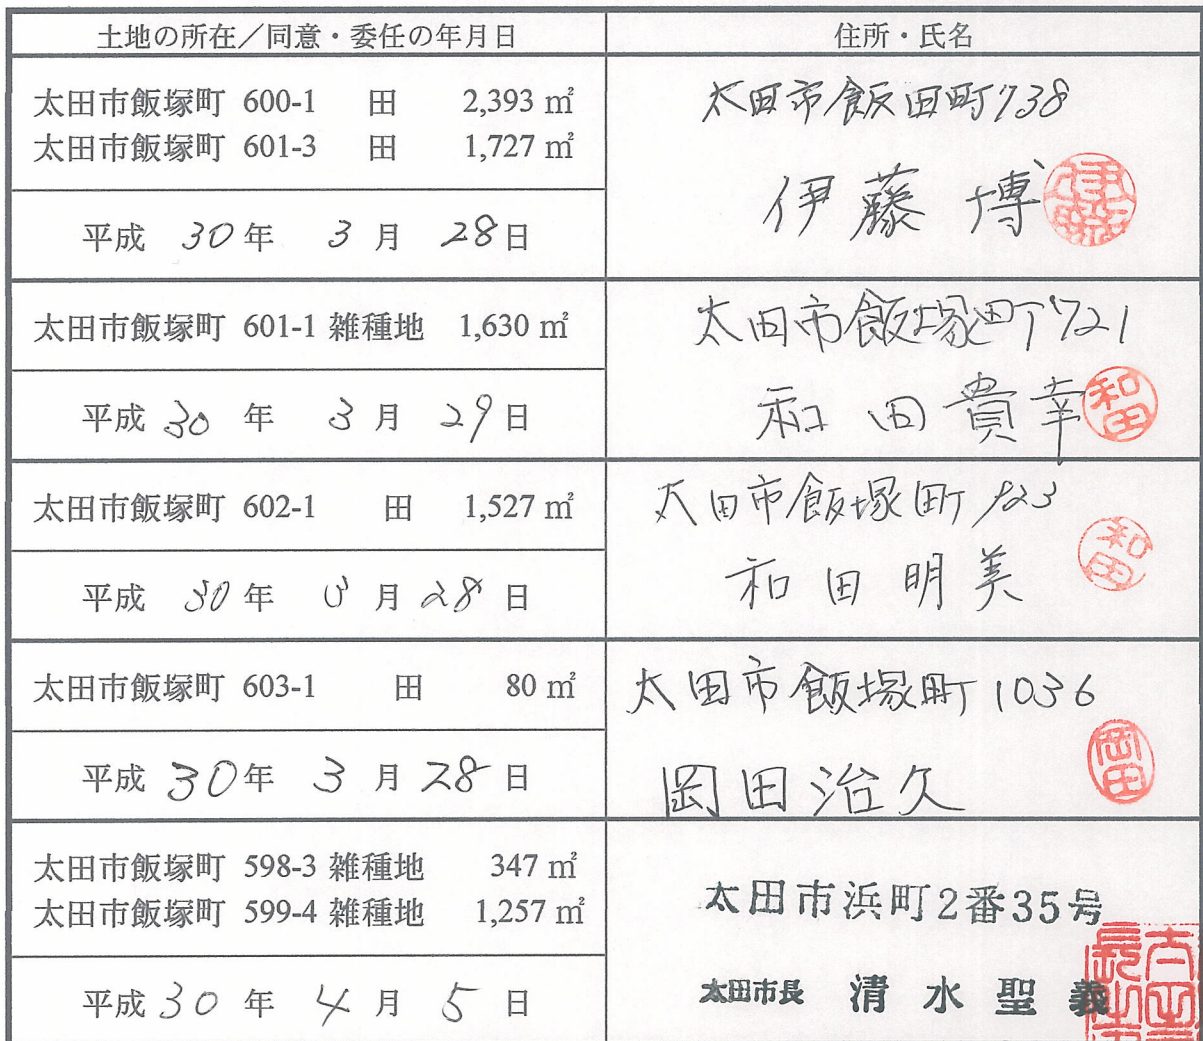 土地の所在／同意・委任の年月日
住所・氏名
太田市飯塚町 600-1 田 2,393 ㎡
太田市飯塚町 601-3 田 1,727 ㎡
平成 30 年 3 月 28 日
太田市飯田町738
伊藤 博
伊藤
太田市飯塚町 601-1 雑種地 1,630 ㎡
平成 30 年 3 月 29 日
太田市飯塚町721
和田貴幸
和田
太田市飯塚町 602-1 田 1,527 ㎡
平成 30 年 3 月 28 日
太田市飯塚町723
和田明美
和田
太田市飯塚町 603-1 田 80 ㎡
平成 30 年 3 月 28 日
太田市飯塚町1036
岡田治久
岡田
太田市飯塚町 598-3 雑種地 347 ㎡
太田市飯塚町 599-4 雑種地 1,257 ㎡
平成 30 年 4 月 5 日
太田市浜町2番35号
太田市長 清水聖義